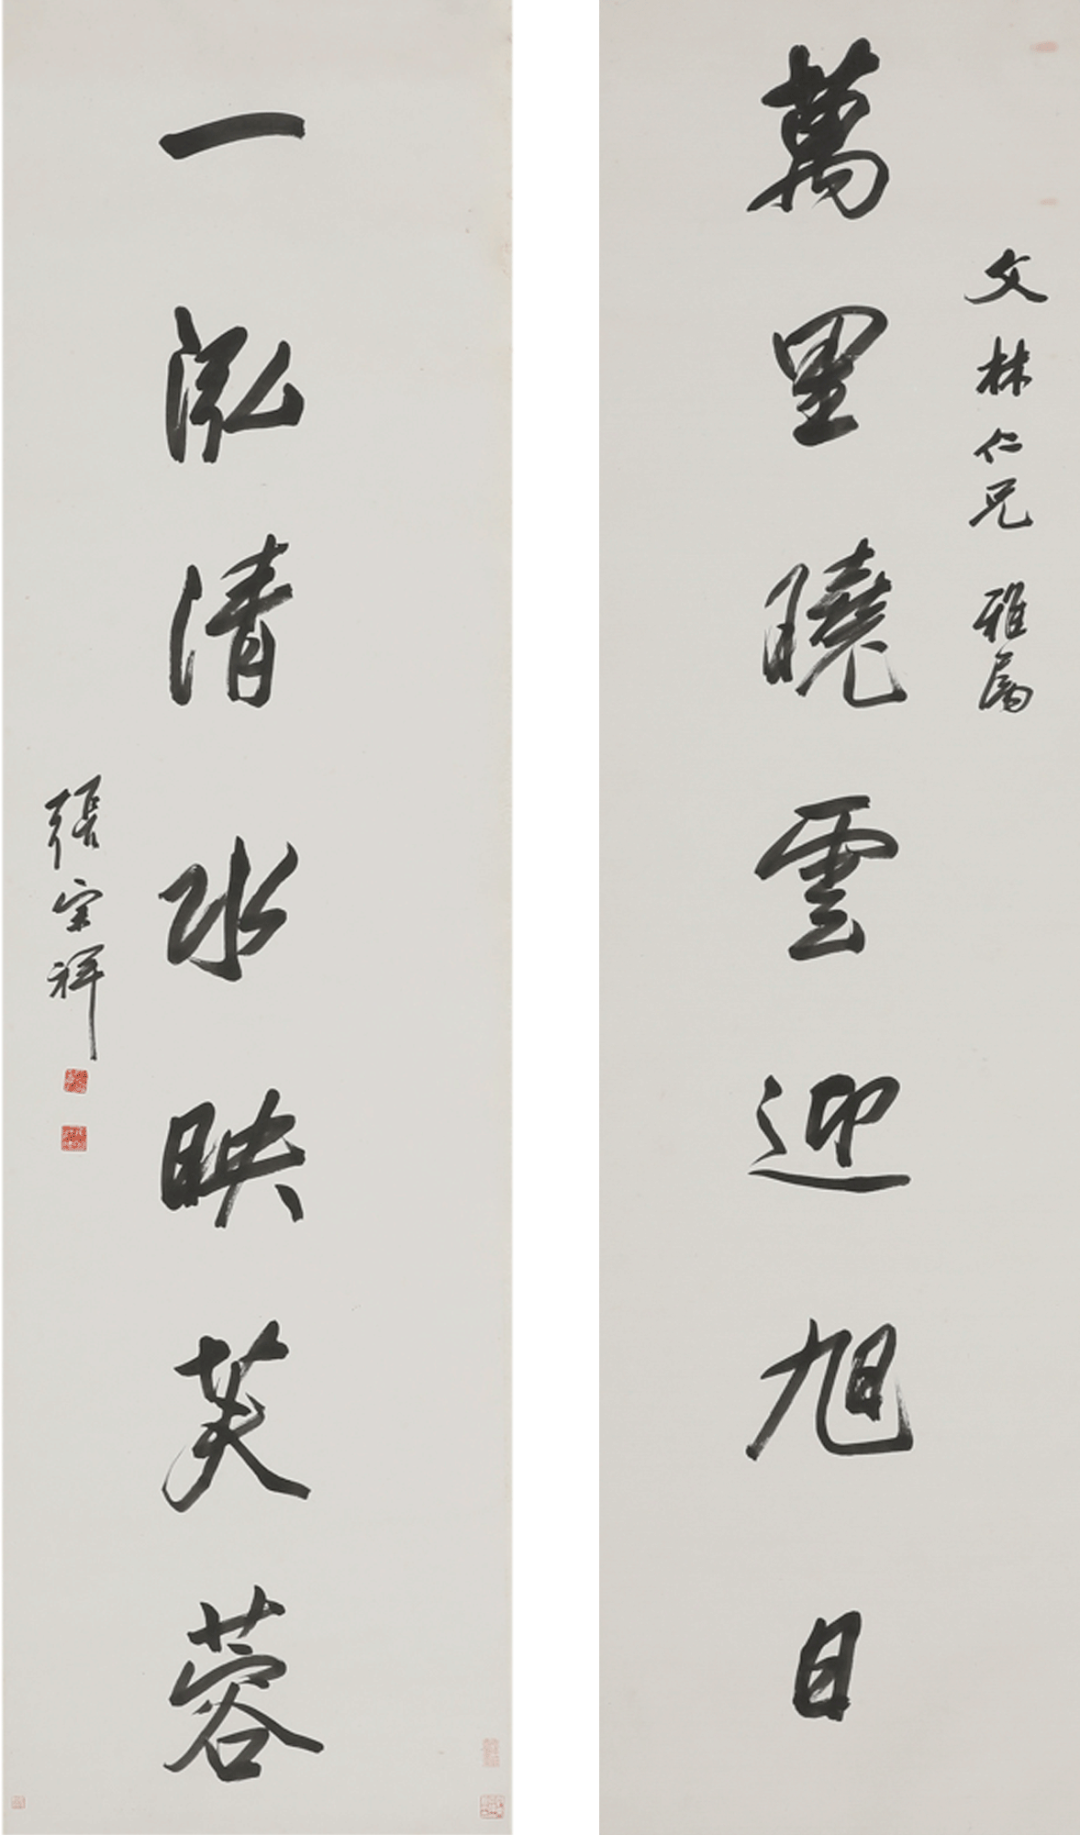 文林仁兄 雅屬
萬里曉雲迎旭日
一泓清水映芙蓉
張宗祥